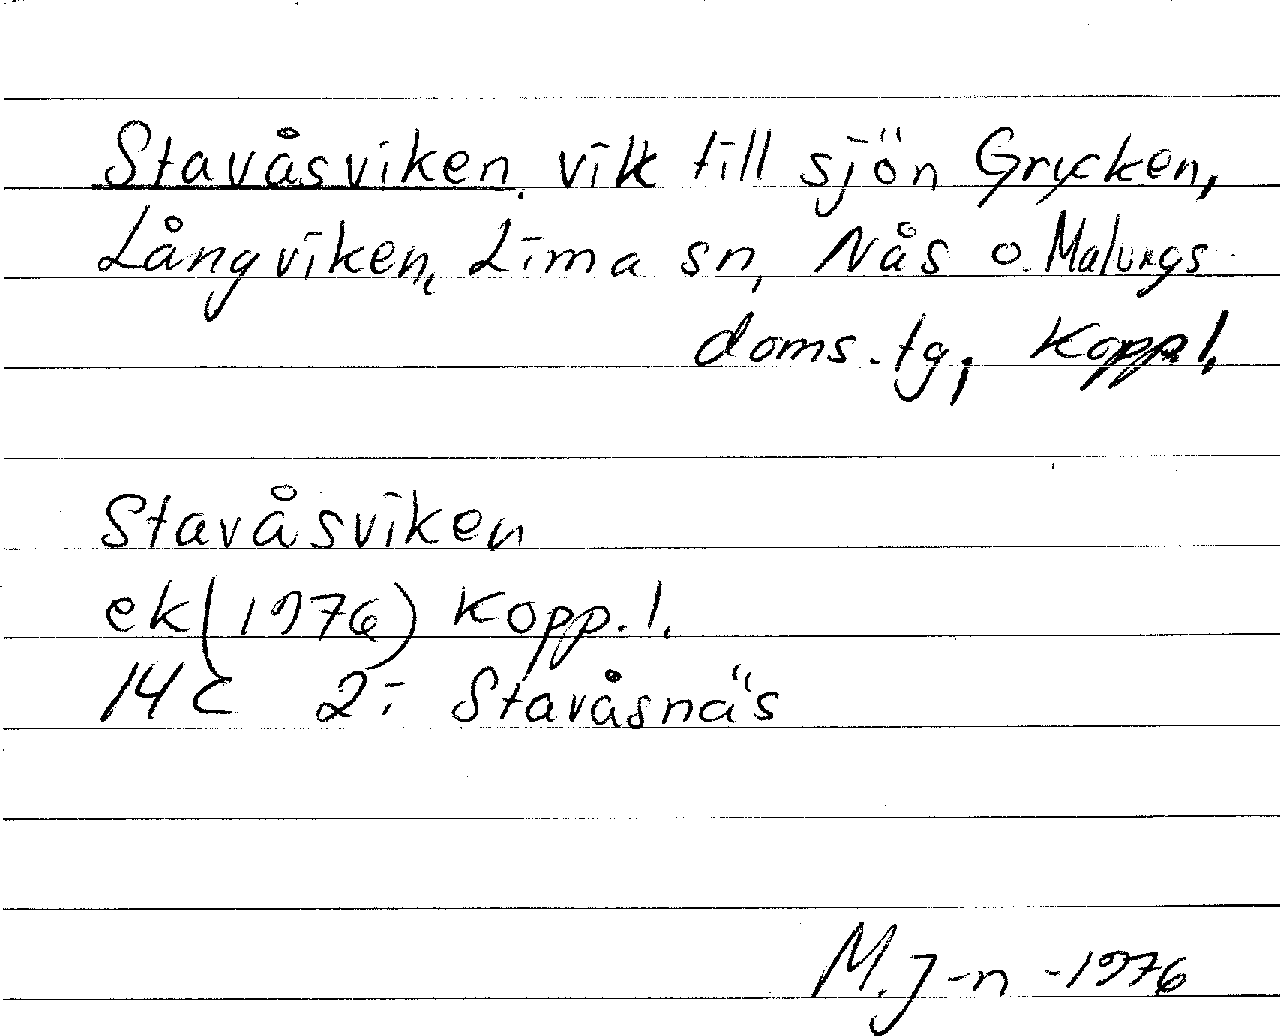 Stavåsviken. vik till sjön Grycken,
Långviken, Lima sn, Nås o. Malungs
doms.tg, Kopp.l.
Stavåsviken
ek (1976) Kopp. l.
14 C 2:- Stavåsnäs
M.J-n -1976